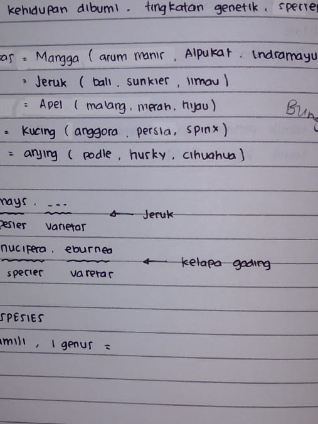 kehidupan dibumi. tingkatan genetik, spesies
as = Mangga ( arum manis, Alpukat, Indramayu
= Jeruk ( bali, sunkies, limau )
= Apel ( malang, merah, hijau )
= kucing ( anggora, persia, spinx )
= anjing ( podle, husky, cihuahua )
mays. ...
pesies varietas ← Jeruk
nucifera. eburnea
spesies varetas ← kelapa gading
SPESIES
amili, 1 genus =